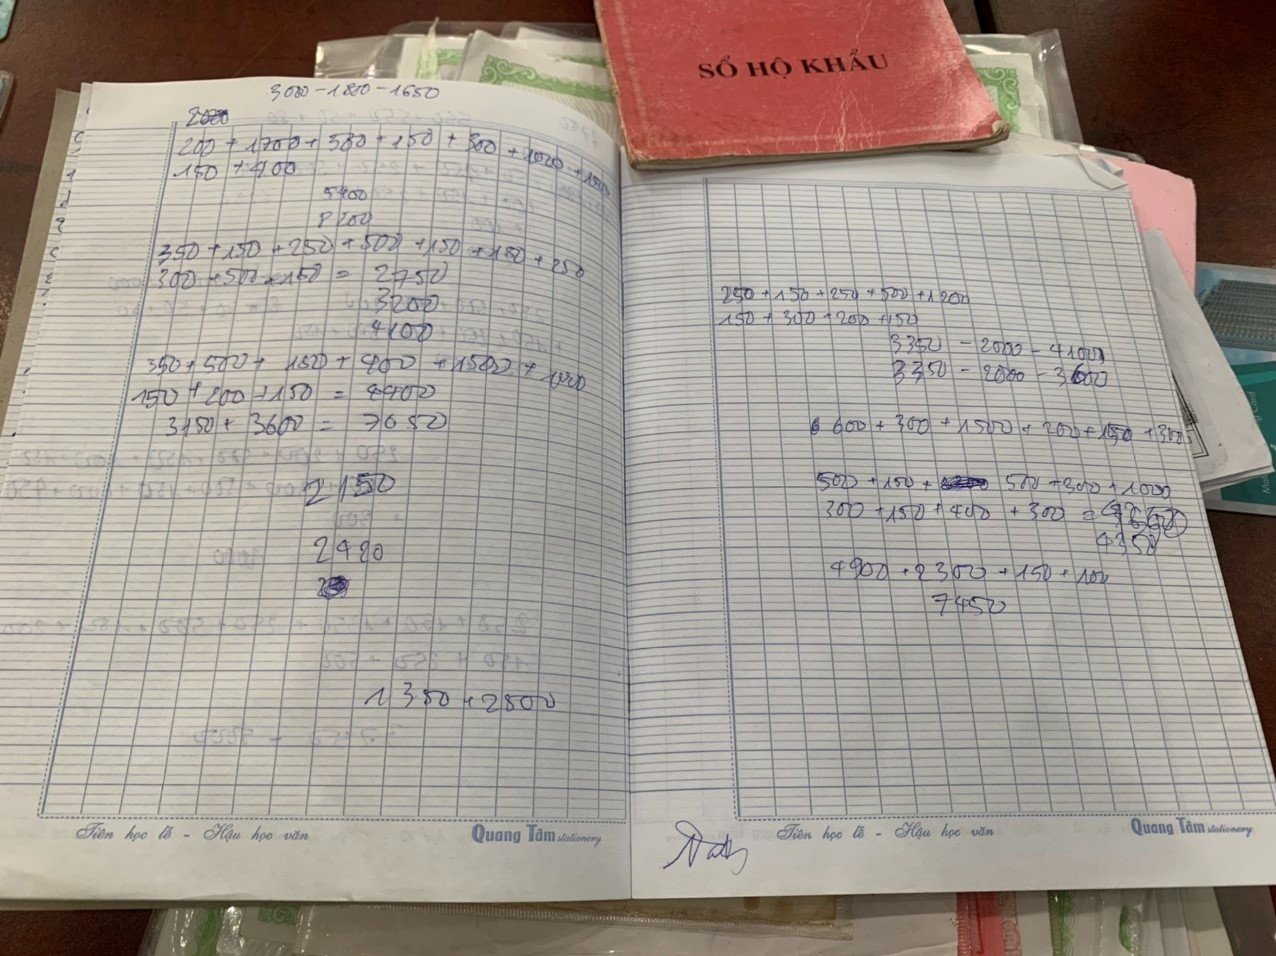 SỔ HỘ KHẨU
3000-1800-1650
200+1700+500+150+300+1000+1500
150+400
5400
8200
350+150+250+500+150+150+250
300+500+150 = 2750
3200
4100
350+500+150+400+1500+1000
150+200+150 = 4400
3150+3600 = 7650
2150
2420
1350+2800
Tiên học lễ - Hậu học văn
Quang Tâm stationery
250+150+250+500+1200
150+300+200+150
3350-2000-4100
3350-2000-3600
600+300+1500+200+150+300
500+150+ 500+300+1000
300+150+400+300 =
4350
4900+2300+150+100
7450
Tiên học lễ - Hậu học văn
Quang Tâm stationery